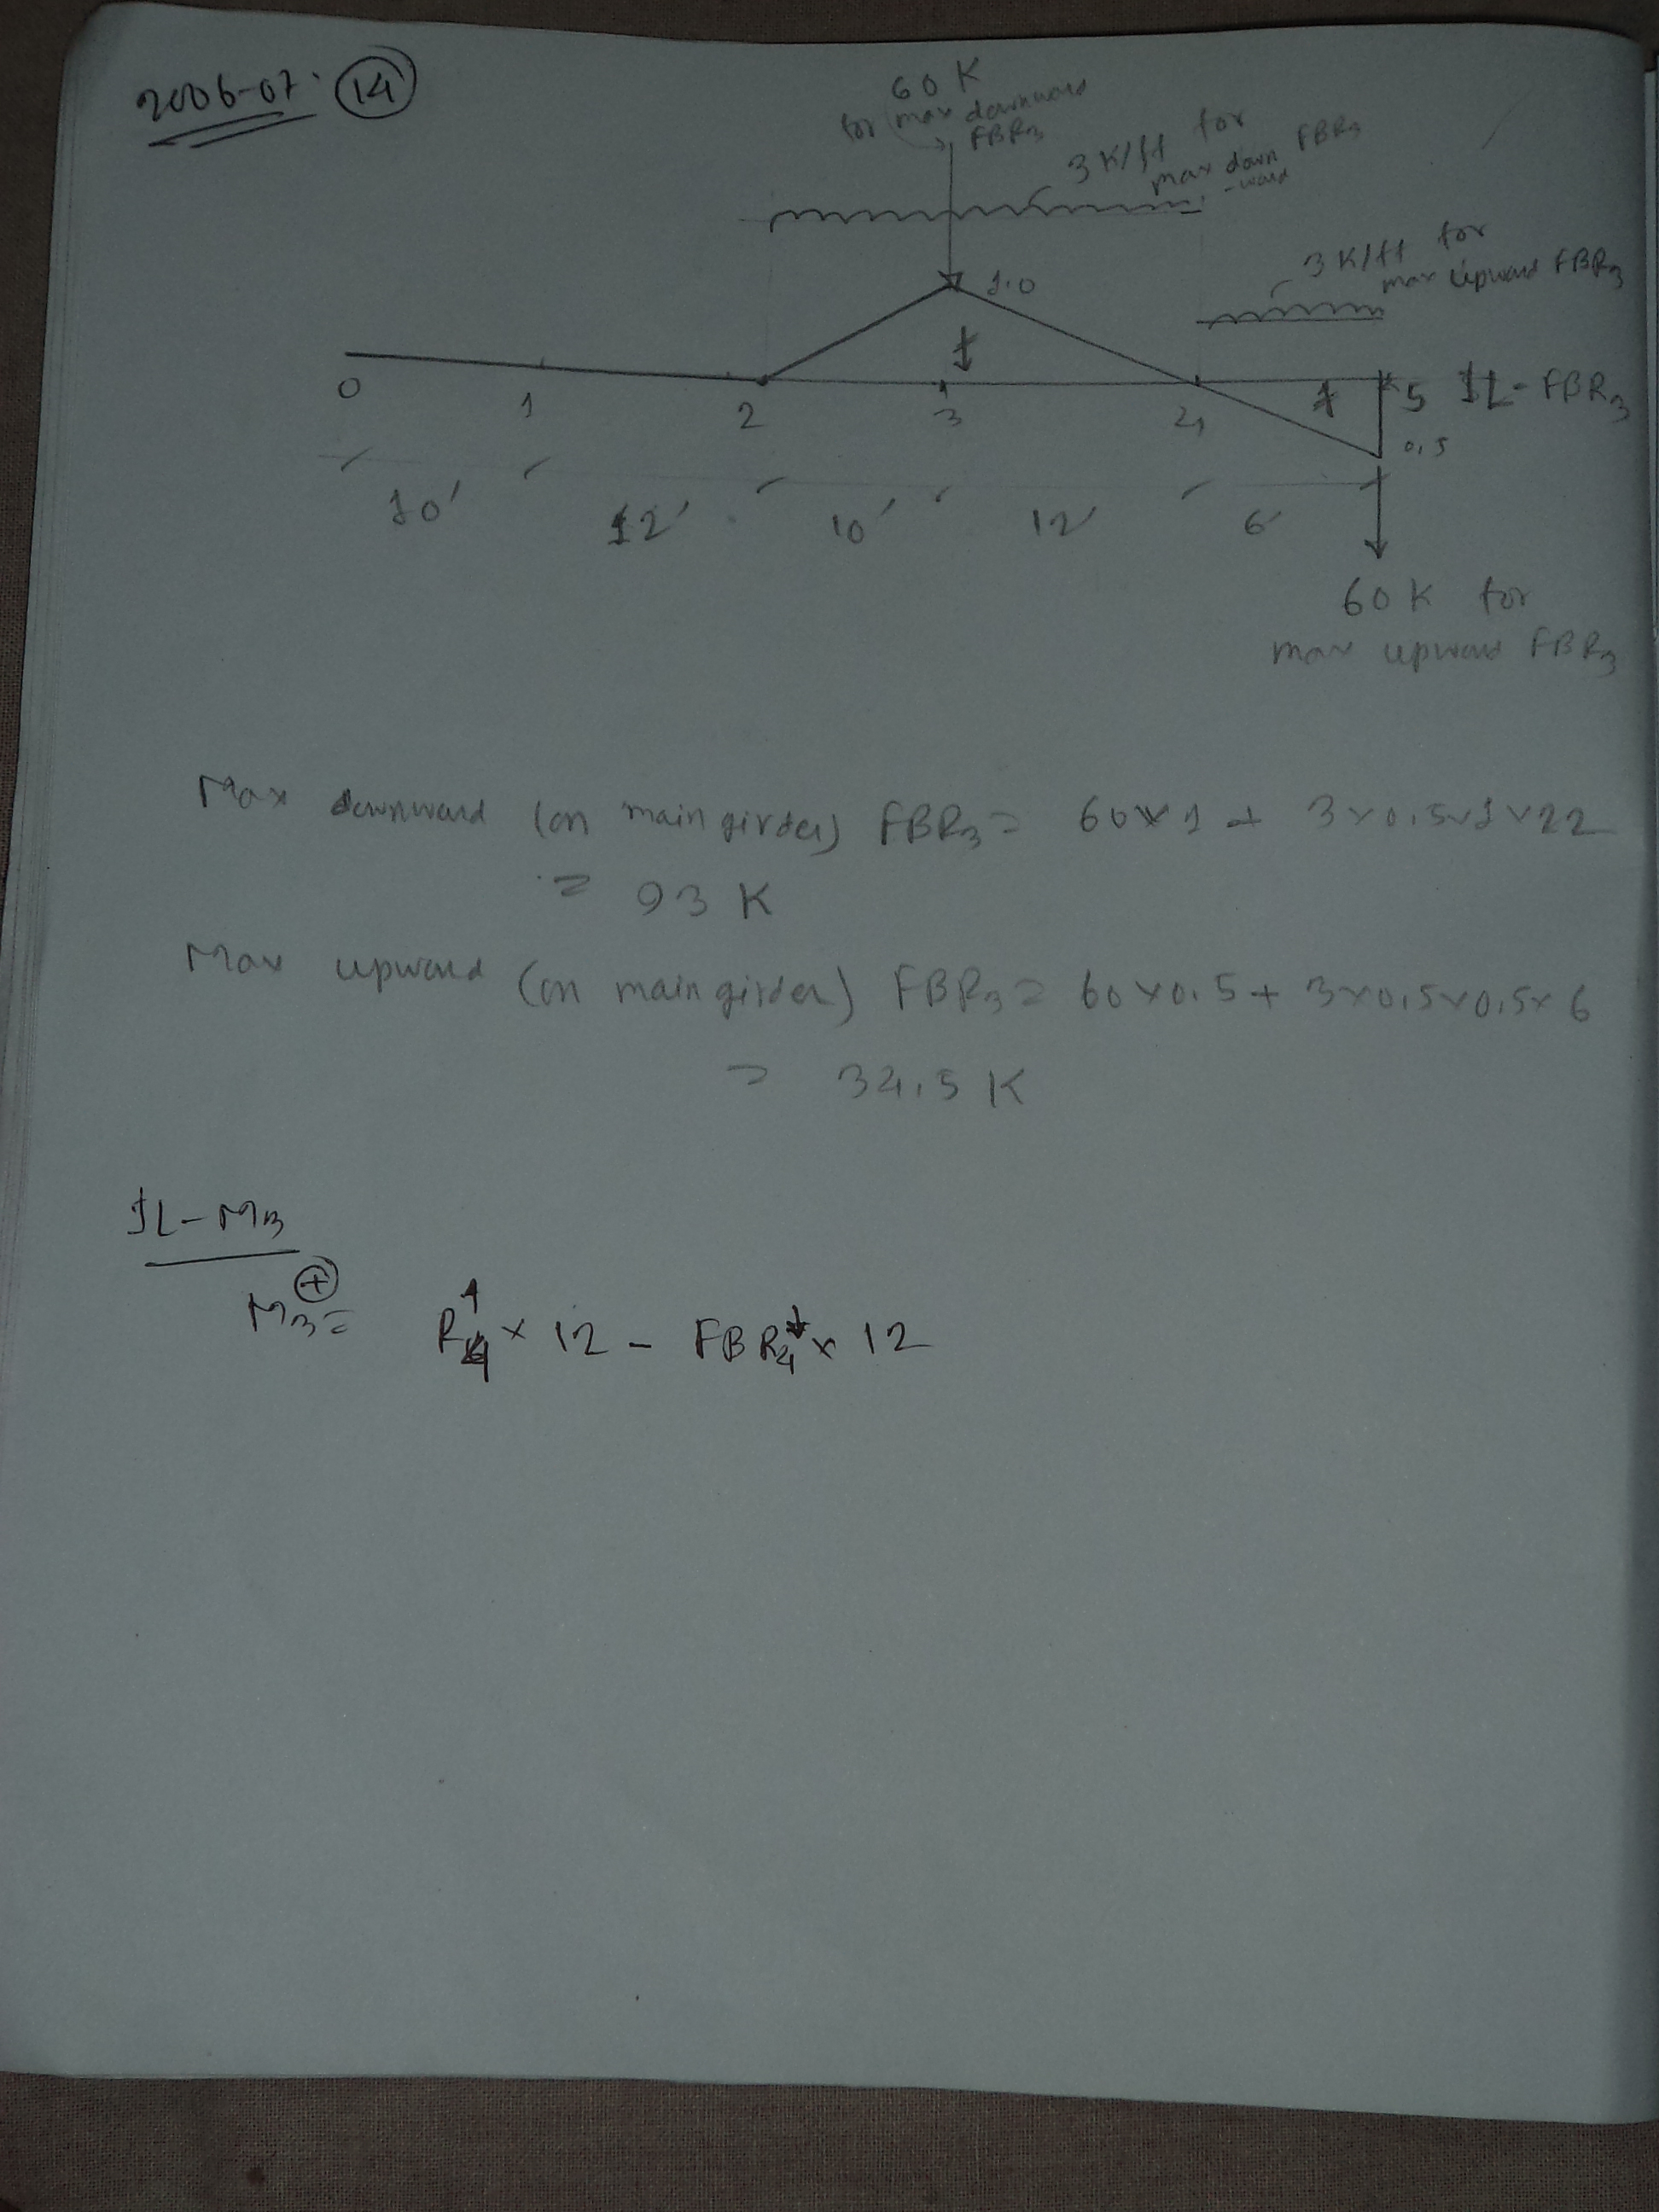 2006-07. 14
60 K
for max downward
FBR3
3 K/ft for
max down FBR3
-ward
3 K/ft for
max upward FBR3
1.0
+
0 1 2 3 4 + 5 IL- FBR3
0.5
10' 12' 10' 12' 6'
60 K for
max upward FBR3
Max downward (on main girder) FBR3 = 60x1 + 3x0.5x1x22
= 93 K
Max upward (on main girder) FBR3 = 60x0.5 + 3x0.5x0.5x6
= 34.5 K
IL-M3
M3 ⊕ = R4↑ x 12 - FBR4↓ x 12